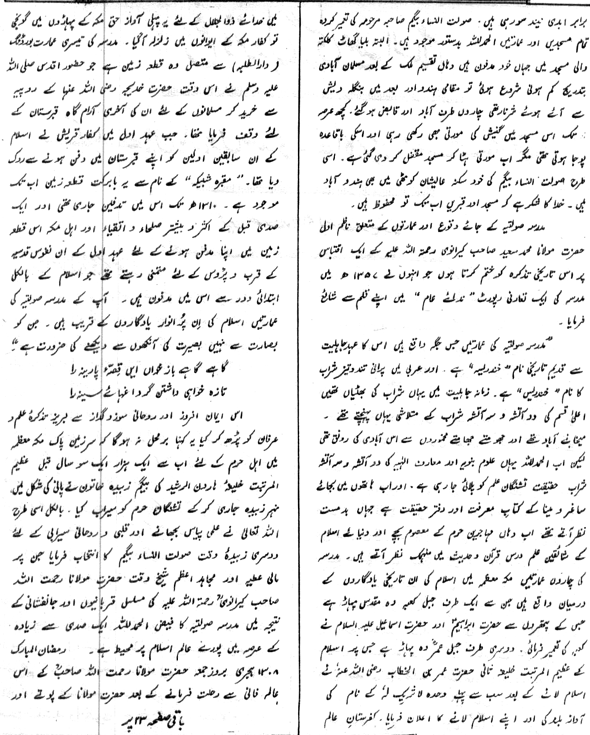 برابر ابدی نیند سو رہی ہیں۔ صولت النساء بیگم صاحبہ مرحومہ کی تعمیر کردہ
تمام مسجدیں اور عمارتیں الحمدللہ بدستور موجود ہیں۔ البتہ بلیا گھاٹ کلکتہ
والی مسجد میں جہاں خود مدفون ہیں وہاں تقسیم ملک کے بعد مسلمان آبادی
بتدریج کم ہونی شروع ہوئی تو مقامی ہندو اور بعد میں بنگلہ دیش
سے آئے ہوئے شرنارتھی چاروں طرف آباد اور قابض ہو گئے۔ کچھ عرصہ
تک اس مسجد میں گنیش کی مورتی بھی رکھی رہی اور اسکی باقاعدہ
پوجا ہوتی تھی مگر اب مورتی ہٹا کر مسجد مقفل کر دی گئی ہے۔ اسی
طرح صولت النساء بیگم کی خود سکنہ عالیشان کوٹھی میں بھی ہندو آباد
ہیں۔ خدا کا شکر ہے کہ مسجد اور قبریں اب تک تو محفوظ ہیں۔
مدرسہ صولتیہ کے جائے وقوع اور عمارتوں کے متعلق ناظم اول
حضرت مولانا محمد سعید صاحب کیرانوی رحمۃ اللہ علیہ کے ایک اقتباس
پر اس تاریخی تذکرہ کو ختم کرتا ہوں جو انہوں نے ۱۳۵۷ھ میں
مدرسہ کی ایک تعارفی رپورٹ "ندائے عام" میں اپنے قلم سے شائع
فرمایا۔
"مدرسہ صولتیہ کی عمارتیں جس جگہ واقع ہیں اس کا عہد جاہلیت
سے قدیم تاریخی نام "خندریسہ" ہے۔ اور عربی میں پرانی تند و تیز شراب
کا نام "خندریس" ہے۔ زمانہ جاہلیت میں یہاں شراب کی بھٹیاں تھیں
اعلیٰ قسم کی دو آتشہ و سہ آتشہ شراب کے متلاشی یہاں پہنچتے تھے۔
میخانے آباد تھے اور جھومتے جھامتے مخموروں سے اس آبادی کی رونق تھی
لیکن اب الحمدللہ یہاں علوم نبویہ اور معارف الٰہیہ کی دو آتشہ و سہ آتشہ
شراب حقیقت تشنگان علم کو پلائی جا رہی ہے۔ اور اب ہاتھوں میں بجائے
ساغر و مینا کے کتاب معرفت اور دفتر حقیقت ہے جہاں بدمست
نظر آتے تھے اب وہاں مہاجرین حرم کے معصوم بچے اور دنیائے اسلام
کے شائقین علم درس قرآن و حدیث میں منہمک نظر آتے ہیں۔ مدرسہ
کی چاروں عمارتیں مکہ معظمہ میں اسلام کی ان تاریخی یادگاروں کے
درمیان واقع ہیں جن سے ایک طرف جبل کعبہ وہ مقدس پہاڑ ہے
جس کے پتھروں سے حضرت ابراہیمؑ اور حضرت اسماعیل علیہ السلام نے
کعبہ کی تعمیر فرمائی۔ دوسری طرف جبل عمرؓ وہ پہاڑ ہے جس پر اسلام
کے عظیم المرتبت خلیفہ ثانی حضرت عمر بن الخطاب رضی اللہ عنہ نے
اسلام لانے کے بعد سب سے پہلے وحدہ لاشریک لہٗ کے نام کی
آواز بلند کی اور اپنے اسلام لانے کا اعلان فرمایا۔ کفرستان عالم
میں خدائے ذوالجلال کے لئے یہ پہلی آواز حق مکہ کے پہاڑوں میں گونجی
تو کفار مکہ کے ایوانوں میں زلزلہ آگیا۔ مدرسہ کی تیسری عمارت بورڈنگ
(دارالطلبہ) سے متصل وہ قطعہ زمین ہے جو حضور اقدس صلی اللہ
علیہ وسلم نے اسی وقت حضرت خدیجہ رضی اللہ عنہا کے روپیہ
سے خرید کر مسلمانوں کے لئے ان کی آخری آرام گاہ قبرستان کے
لئے وقف فرمایا تھا۔ جب عہد اول میں کفار قریش نے اسلام
کے ان سابقین اولین کو اپنے قبرستان میں دفن ہونے سے روک
دیا تھا۔ "مقبرہ شبیکہ" کے نام سے یہ بابرکت قطعہ زمین اب تک
موجود ہے۔ ۱۳۱۰ھ تک اس میں تدفین جاری تھی اور ایک
صدی قبل کے اکثر و بیشتر صلحاء و اتقیاء اور اہل مکہ اس قطعہ
زمین میں اپنا مدفن ہونے کے لئے عہد اول کے ان نفوس قدسیہ
کے قرب و پڑوس کے لئے متمنی رہتے تھے جو اسلام کے بالکل
ابتدائی دور سے اس میں مدفون ہیں۔ آپ کے مدرسہ صولتیہ کی
عمارتیں اسلام کی ان پُر انوار یادگاروں کے قریب ہیں۔ جن کو
بصارت سے نہیں بصیرت کی آنکھوں سے دیکھنے کی ضرورت ہے"
گاہے گاہے باز خواں ایں قصۂ پارینہ را
تازہ خواہی داشتن گر داغہائے سینہ را
اس ایمان افروز اور روحانی سوز و گداز سے لبریز تذکرۂ علم و
عرفان کو پڑھ کر کیا یہ کہنا برمحل نہ ہوگا کہ سرزمین پاک مکہ معظمہ
میں اہل حرم کے لئے اب سے ایک ہزار ایک سو سال قبل عظیم
المرتبت خلیفہ ہارون الرشید کی بیگم زبیدہ خاتون نے پانی کی شکل میں
نہر زبیدہ جاری کر کے تشنگان حرم کو سیراب کیا۔ بالکل اسی طرح
اللہ تعالیٰ نے علمی پیاس بجھانے اور قلبی و روحانی سیرابی کے لئے
دوسری زبیدۂ وقت صولت النساء بیگم کا انتخاب فرمایا جن پر
مالی عطیہ اور مجاہد اعظم شیخ وقت حضرت مولانا رحمت اللہ
صاحب کیرانوی رحمۃ اللہ علیہ کی مسلسل قربانیوں اور جانفشانی کے
نتیجہ میں مدرسہ صولتیہ کا فیض الحمدللہ ایک صدی سے زیادہ
کے عرصہ میں پورے عالم اسلام پر محیط ہے۔ رمضان المبارک
۱۳۰۸ ہجری بروز جمعہ حضرت مولانا رحمت اللہ صاحبؒ کے اس
عالم فانی سے رحلت فرمانے کے بعد حضرت مولانا کے پوتے اور
باقی صفحہ ۲۳ پر